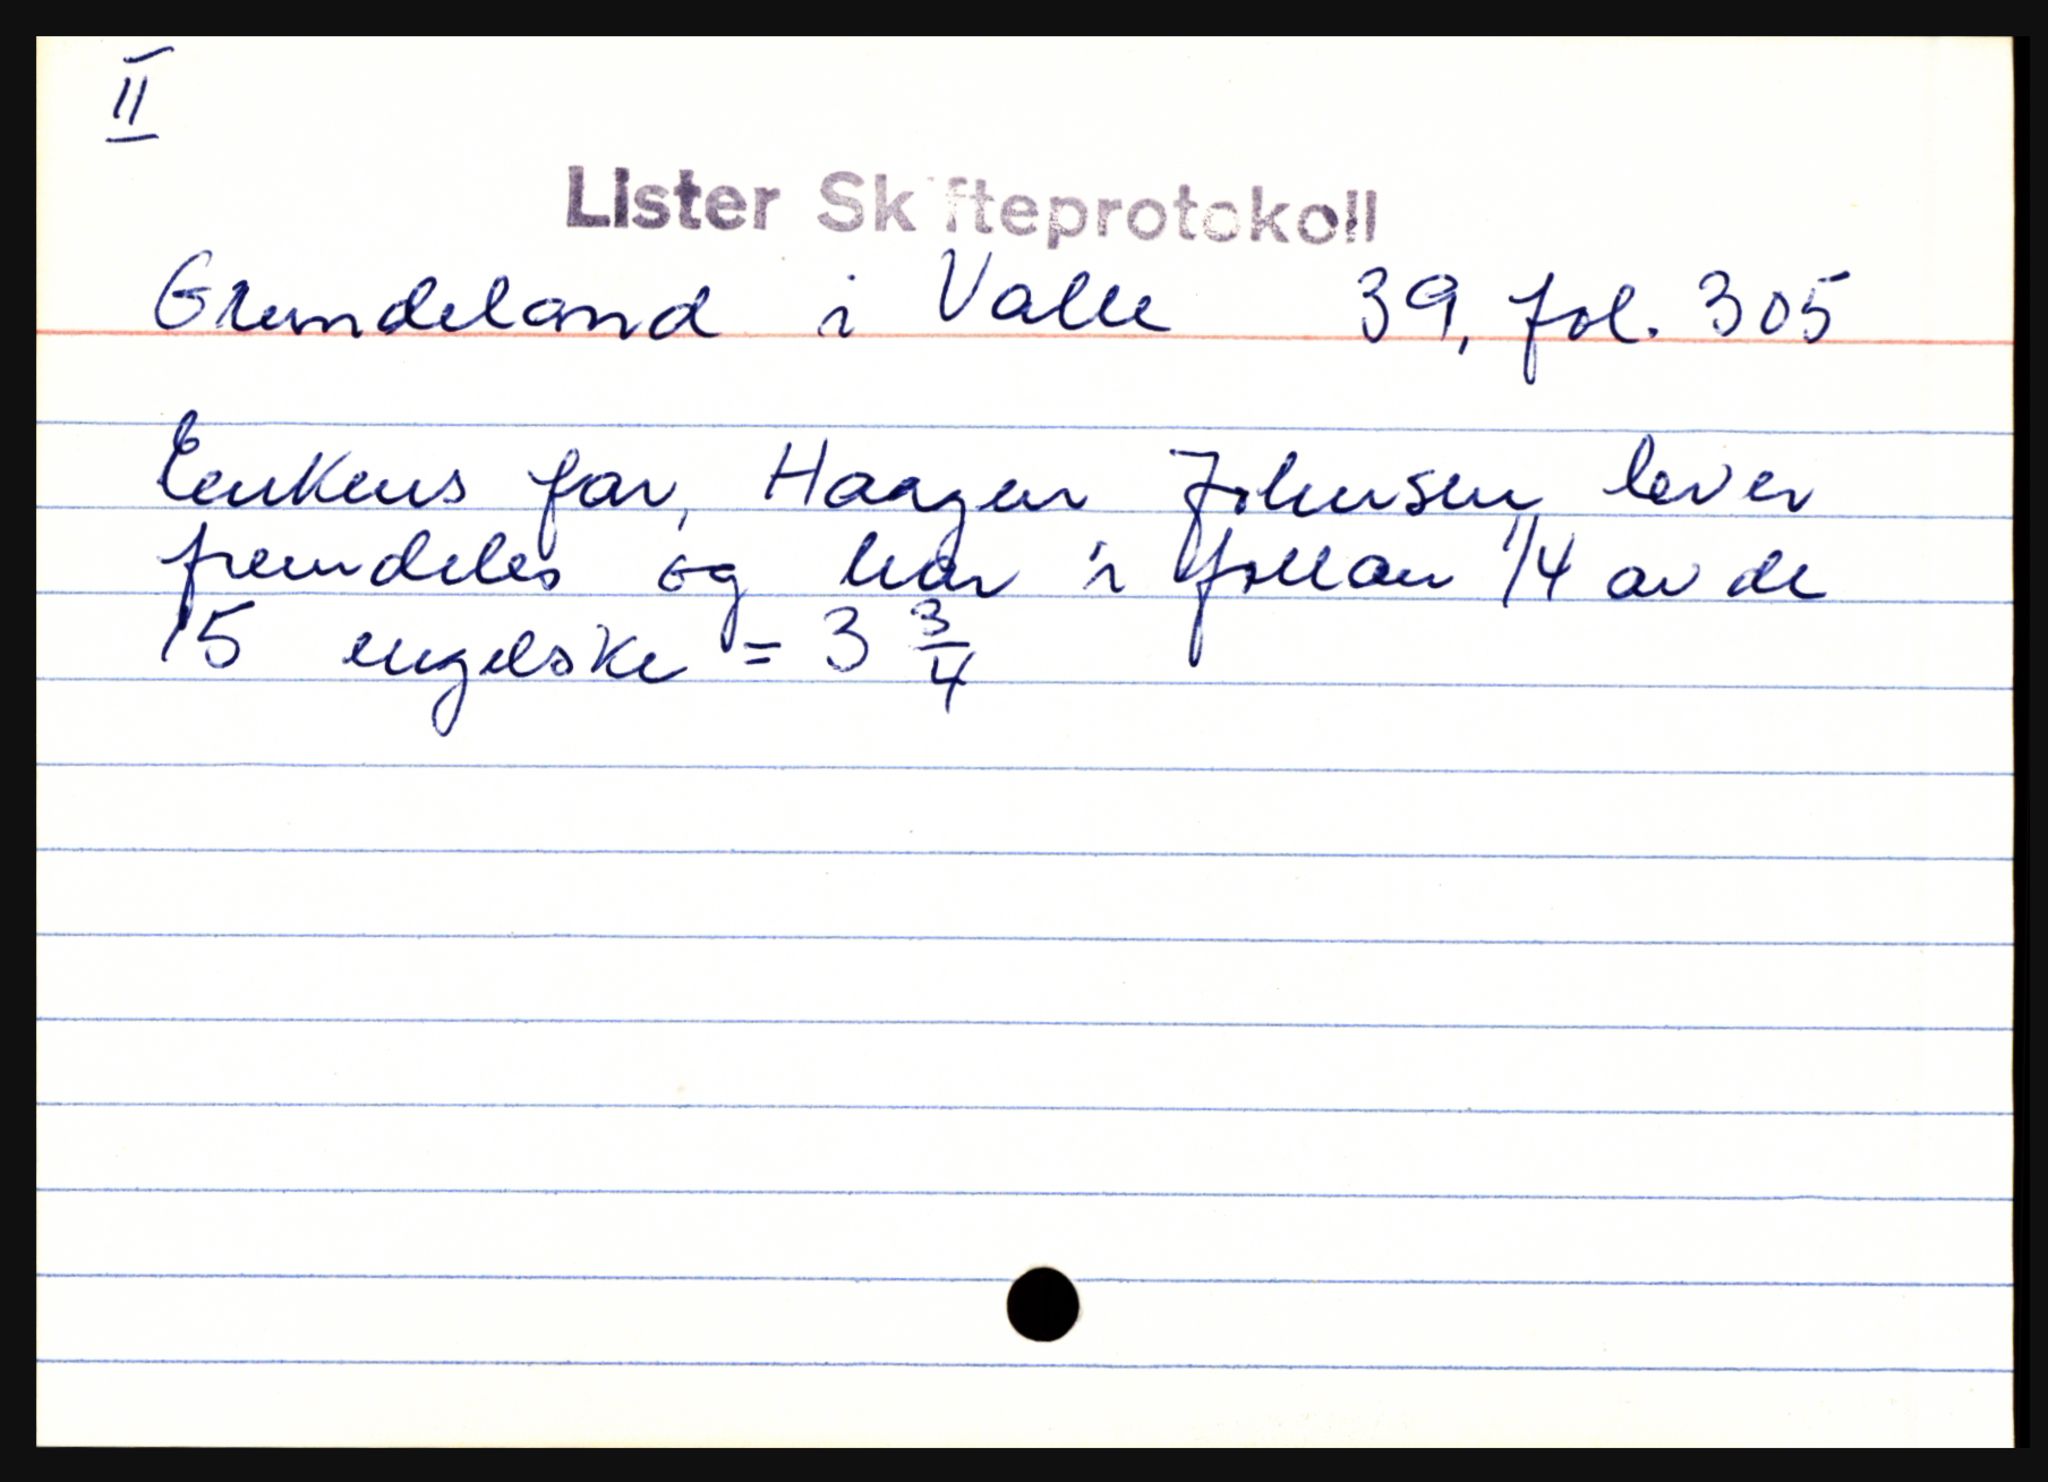 II
Lister Skifteprotokoll
Grundeland i Valle 39, fol. 305
Enkens far, Haagen Johnsen lever
fremdeles og har i follau 1/4 av de
15 engelske = 3 3/4